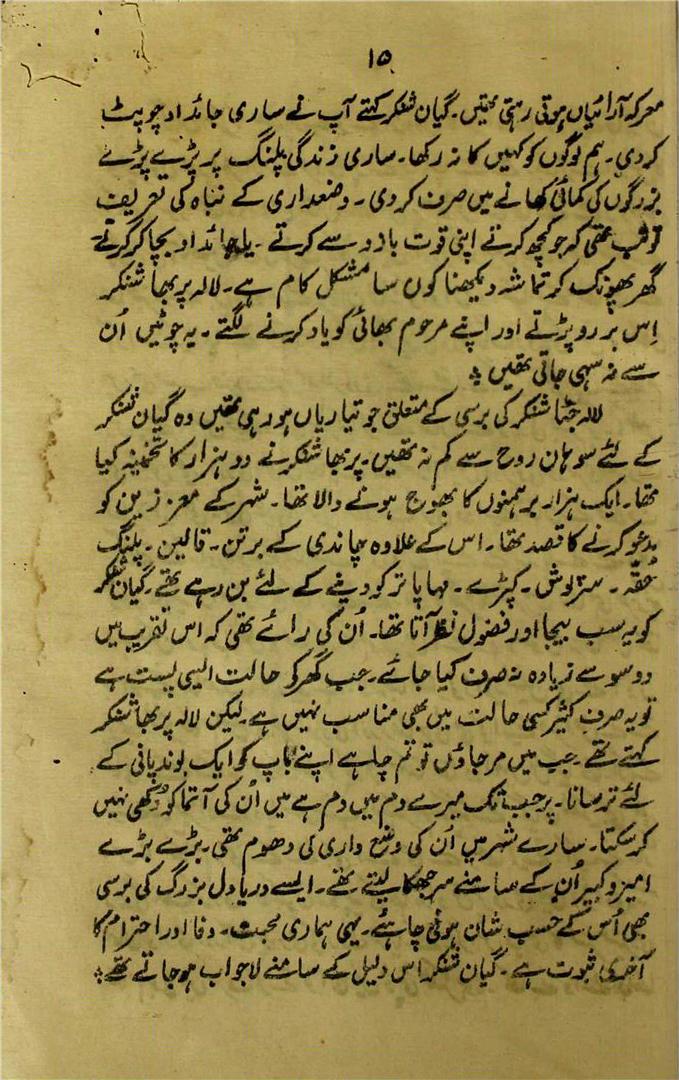 ۱۵
معرکہ آرائیاں ہوتی رہتی تھیں۔ گیان شنکر کہتے آپ نے ساری جائداد چوپٹ
کردی۔ ہم لوگوں کو کہیں کا نہ رکھا۔ ساری زندگی پلنگ پر پڑے پڑے
بزرگوں کی کمائی کھانے میں صرف کردی۔ وضعداری کے نباہ کی تعریف
تو جب تھی کہ جو کچھ کرتے اپنی قوت بازو سے کرتے۔ یا جائداد بچا کر کرتے۔
گھر پھونک کر تماشہ دیکھنا کون سا مشکل کام ہے۔ لالہ پربھا شنکر
اِس پر رو پڑتے اور اپنے مرحوم بھائی کو یاد کرنے لگتے۔ یہ چوٹیں اُن
سے نہ سہی جاتی تھیں ÷
لالہ جٹا شنکر کی برسی کے متعلق جو تیاریاں ہو رہی تھیں وہ گیان شنکر
کے لئے سوہان روح سے کم نہ تھیں۔ پربھا شنکر نے دو ہزار کا تخمینہ کیا
تھا۔ ایک ہزار برہمنوں کا بھوج ہونے والا تھا۔ شہر کے معززین کو
مدعو کرنے کا قصد تھا۔ اس کے علاوہ چاندی کے برتن۔ قالین۔ پلنگ
حُقّہ۔ سرپوش۔ کپڑے۔ مہاپاتر کو دینے کے لئے بن رہے تھے۔ گیان شنکر
کو یہ سب بیجا اور فضول نظر آتا تھا۔ اُن کی رائے تھی کہ اس تقریب میں
دو سو سے زیادہ نہ صرف کیا جائے۔ جب گھر کو حالت ایسی پست ہے
تو یہ صرفِ کثیر کسی حالت میں بھی مناسب نہیں ہے۔ لیکن لالہ پربھا شنکر
کہتے تھے۔ جب میں مر جاؤں تو تم چاہے اپنے باپ کو ایک بوند پانی کے
لئے ترسانا۔ پر جب تک میرے دم میں دم ہے میں اُن کی آتما کو دُکھی نہیں
کرسکتا۔ سارے شہر میں اُن کی وضع داری کی دھوم تھی۔ بڑے بڑے
امیر و کبیر اُن کے سامنے سر جھکا لیتے تھے۔ ایسے دریا دل بزرگ کی برسی
بھی اُس کے حسب شان ہونی چاہئے۔ یہی ہماری محبت۔ وفا اور احترام کا
آخری ثبوت ہے۔ گیان شنکر اس دلیل کے سامنے لاجواب ہوجاتے تھے ÷